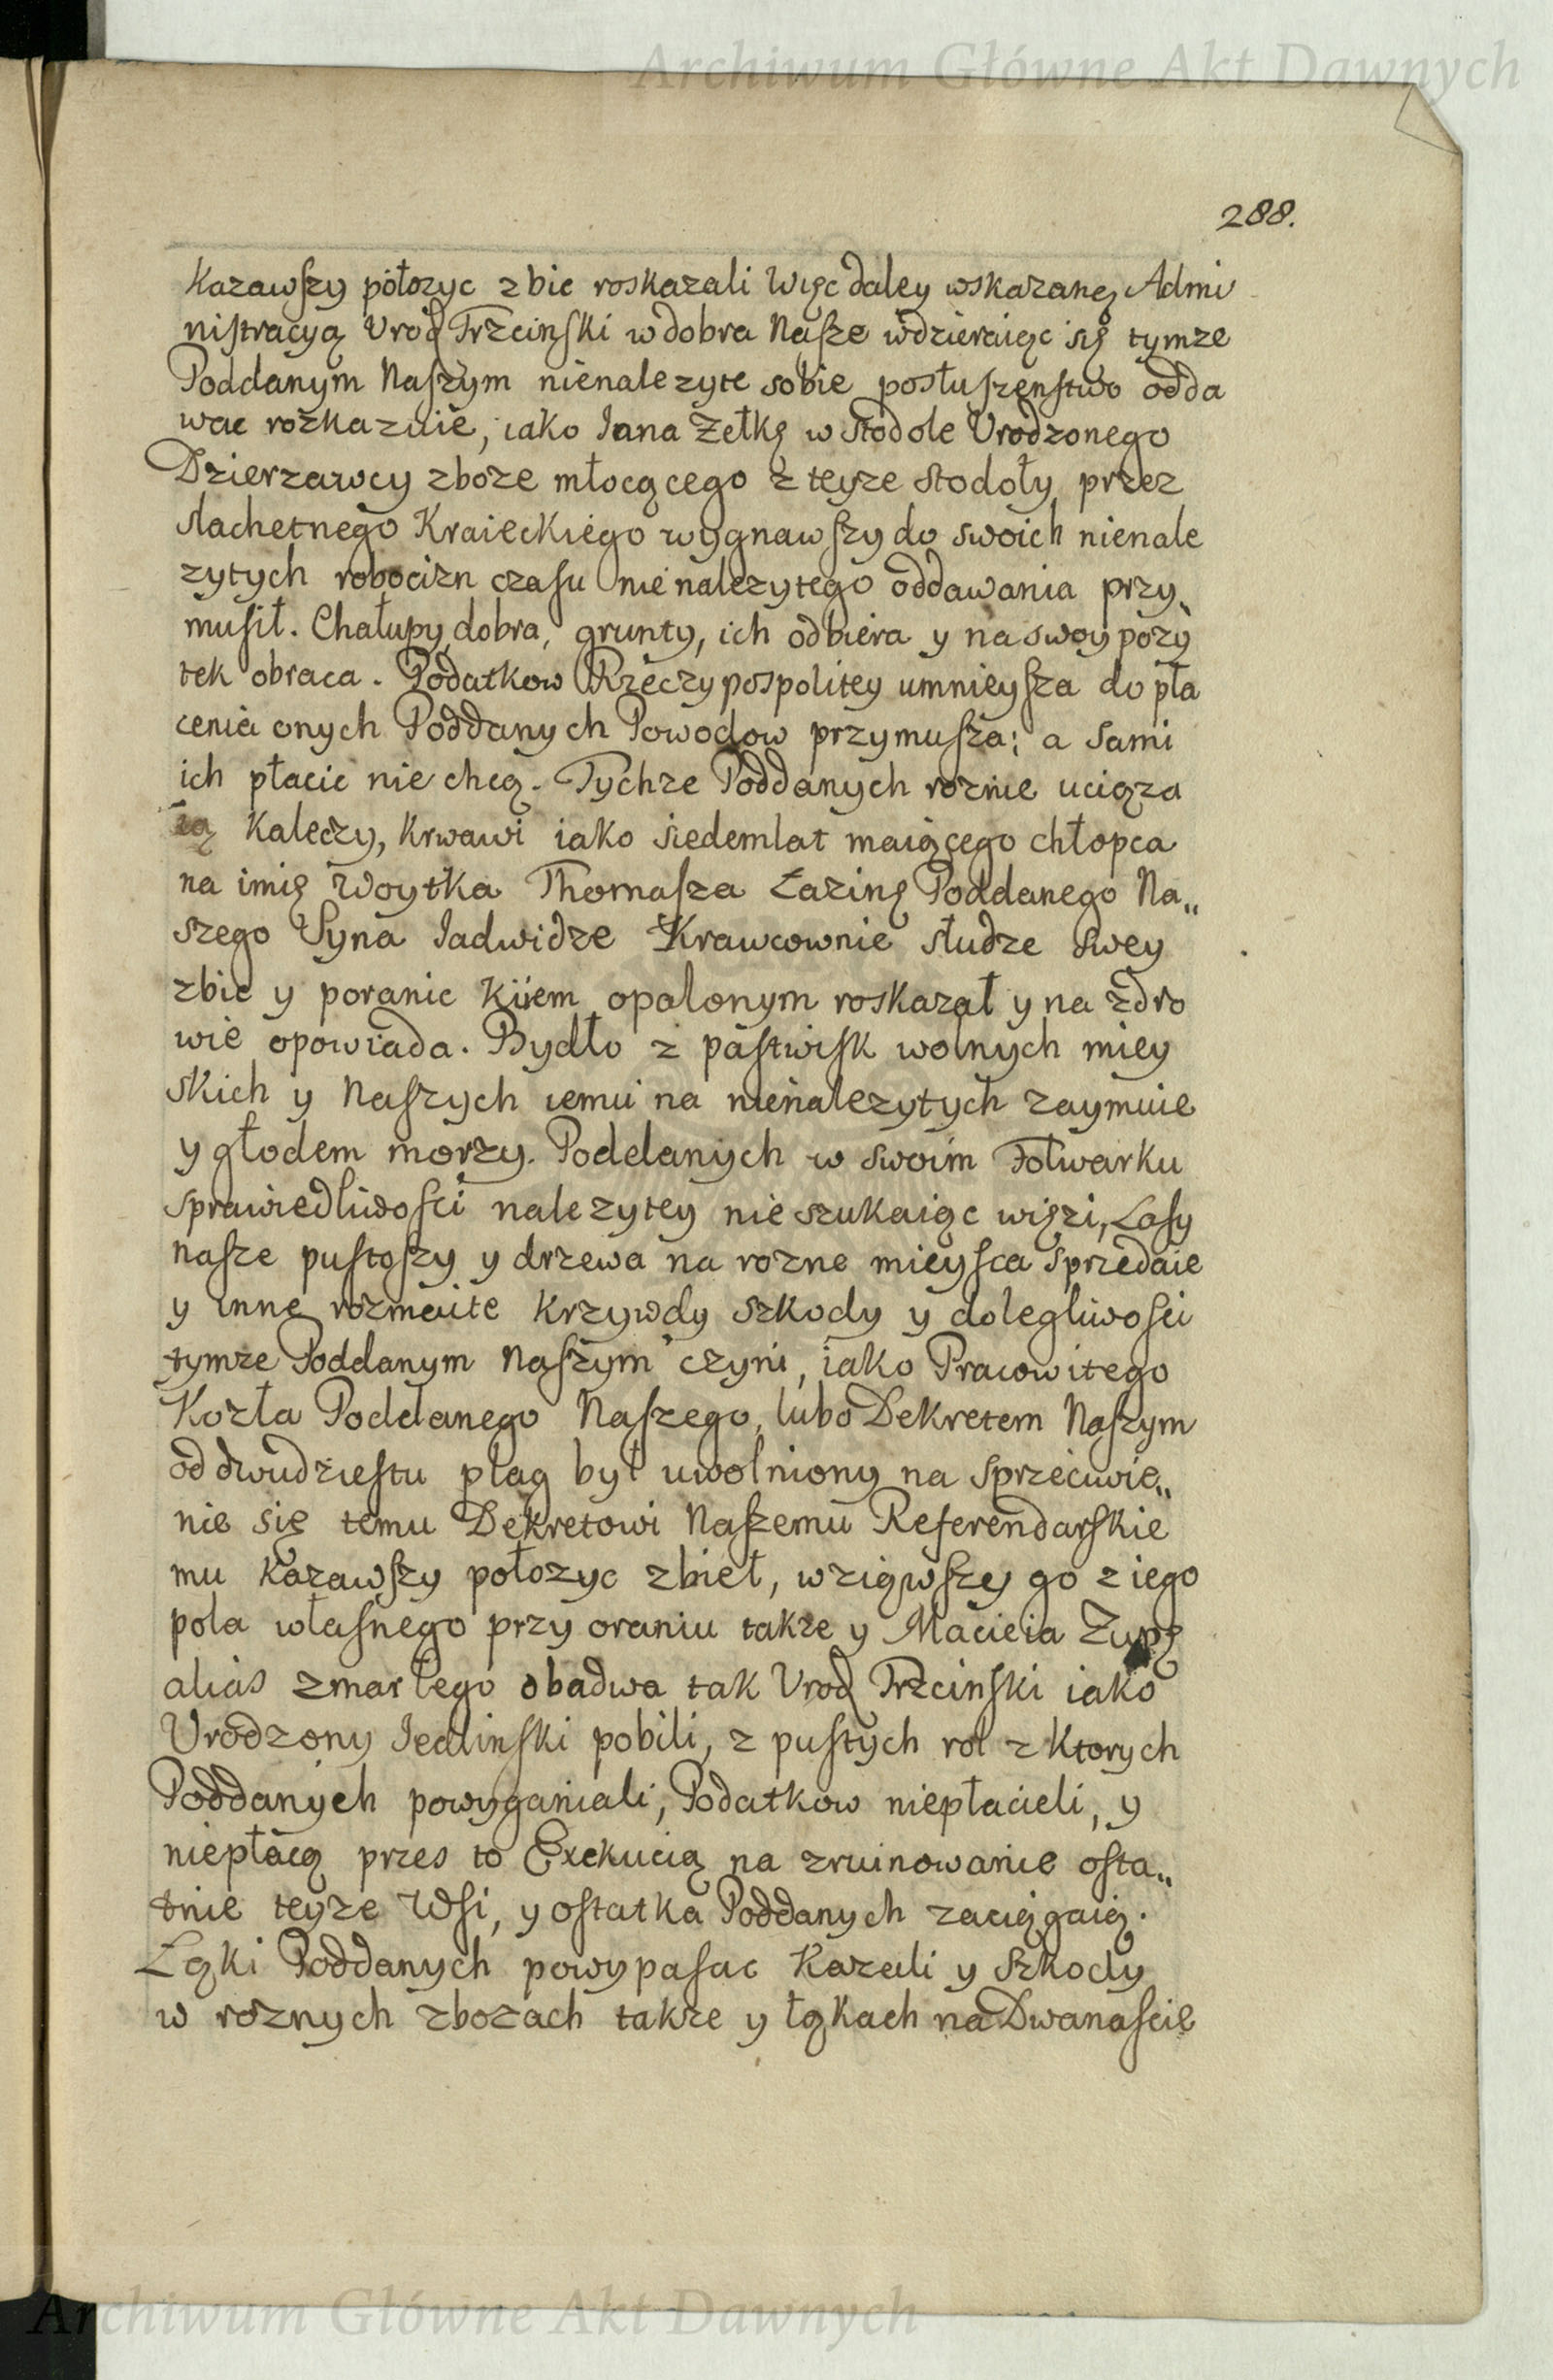 Archiwum Główne Akt Dawnych
288.
Kazawszy połozyc zbic roskazali Więc daley wskazaną Admi
nistracyą Urod Trzcinski w dobra Nasze wdzieraiąc się tymze
Poddanym Naszym nienalezyte sobie posłuszenstwo odda
wac rozkazuie, iako Iana Zełkę w stodole Urodzonego
Dzierzawcy zboze młocącego z teyze stodoły przez
slachetnego Kraieckiego wygnawszy do swoich nienale
zytych robocizn czasu nienalezytego oddawania przy
musił. Chałupy, dobra, grunty, ich odbiera y na swoy pozy
tek obraca. Podatkow Rzeczypospolitey umnieysza do pła
cenia onych Poddanych Powodow przymusza; a sami
ich płacic nie chcą. Tychze Poddanych roznie uciąza
ią Kaleczy, Krwawi iako siedemlat maiącego chłopca
na imię Woytka Thomasza Łazinę Poddanego Na„
szego Syna Iadwidze Krawcownie słudze swey
zbic y poranic Kiiem opalonym roskazał y na zdro
wie opowiada. Bydło z pastwisk wolnych miey
skich y Naszych iemu na nienalezytych zaymuie
y głodem morzy. Poddanych w swoim Folwarku
sprawiedliwosci nalezytey nie szukaiąc więzi, Lasy
nasze pustoszy y drzewa na rozne mieysca sprzedaie
y inne rozmaite Krzywdy szkody y dolegliwosci
tymze Poddanym Naszym czyni, iako Pracowitego
Kozła Poddanego Naszego, lubo Dekretem Naszym
od dwudziestu plag był uwolniony na sprzeciwie„
nie się temu Dekretowi Naszemu Referendarskie
mu Kazawszy połozyc zbieł, wziąwszy go z iego
pola własnego przy oraniu takze y Macieia Zupę
alias zmarłego obadwa tak Urod Trzcinski iako
Urodzony Iedlinski pobili, z pustych rol z Ktorych
Poddanych powyganiali, Podatkow niepłacieli, y
niepłacą przes to Exekucią na zruinowanie osta„
tnie teyze Wsi, y ostatka Poddanych zaciągaią.
Łąki Poddanych powypasac Kazali y szkody
w roznych zbozach takze y łąkach na Dwanascie
Archiwum Główne Akt Dawnych